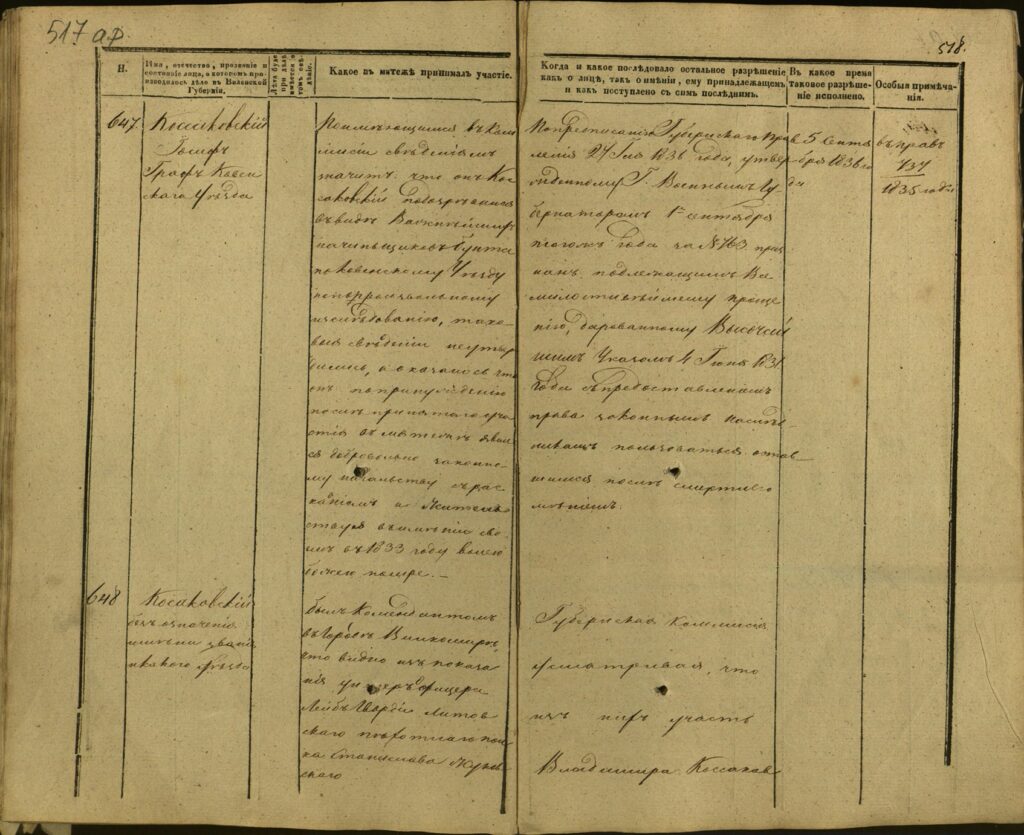 517 ар.
518.
Н.
Имя, отечество, прозвание и
состояние лица, о котором про-
изводилось дело в Виленской
Губернии.
Какое въ мятежѣ принималъ участіе.
Когда и какое послѣдовало остальное разрѣшеніе
какъ о лицѣ, такъ о имѣніи, ему принадлежащемъ
и какъ поступлено съ симъ послѣднимъ.
Въ какое время
таковое разрѣше-
ніе исполнено.
Особыя примѣча-
нія.
647.
Косаковскій
Іосифъ
Графъ Ковен
скаго Уѣзда
По имѣющимся въ Ком
мисіи свѣденіямъ
значитъ: что онъ Кос
саковскій подозрѣвался
въ видѣ Важнѣйших
зачинщиковъ бунта
по Ковенскому Уѣзду
по первоначальному
изслѣдованію, тако-
выя свѣденіи неутвер
дились, а оказалось что
онъ по принужденію
послѣ принятаго уча
стія въ мятежѣ явил
ся добровольно законно-
му начальству съ рас
каніемъ и жительс
твуя въ имѣніи сво
емъ въ 1833 году волею
божіею помре. —
По предписанію Губернскаго Прав
ленія 27 1836 года, утвер
жденному Г. Военнымъ Гу
бернаторомъ 1го сентября
тогожъ года за № 763 приз
нанъ подлежащимъ Ве
милостивѣйшему проще
нію, дарованному Высочай
шимъ Указомъ 4 Іюня 1831
года съ предоставленіемъ
права законнымъ наслѣд
никамъ пользоваться остав
шимся послѣ смерти его
имѣніемъ.
5 Сентя
бря 1836 го
да
въ прав
737
1835 года
648
Косаковскій
безъ означенія
имени званія
и какого Уѣзда
былъ Комендантомъ
въ городѣ Вилкомирѣ,
что видно изъ показа
нія унтеръ офицера
Лейбъ Гвардіи Литов
скаго пѣхотнаго пол
ка Станислава Жуков
скаго
Губернская Коммисія
усматривая, что
изъ нихъ участь
Владимира Коссаков